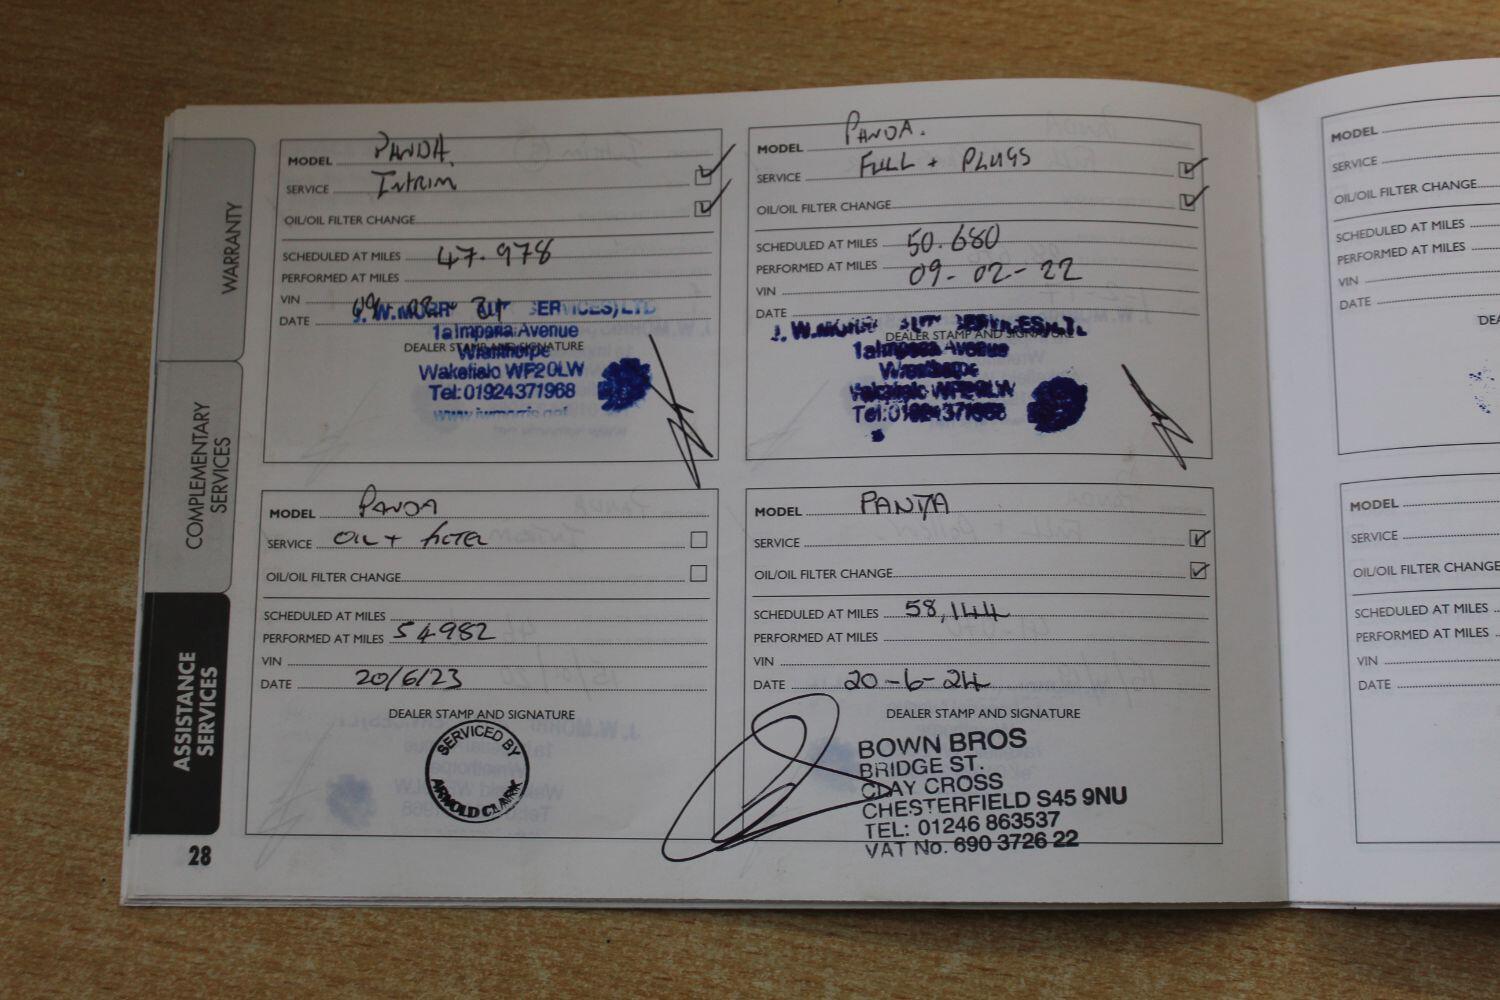 WARRANTY
COMPLEMENTARY
SERVICES
ASSISTANCE
SERVICES
28
MODEL PANDA.
SERVICE INTRIM
OIL/OIL FILTER CHANGE
SCHEDULED AT MILES 47.978
PERFORMED AT MILES
VIN
DATE
J. W. SERVICES) LTD
1a Imperia Avenue
DEALER STAMP AND SIGNATURE
Wrenthorpe
Wakefield WF2 0LW
Tel: 01924371968
www.jwmorris.net
MODEL PANDA.
SERVICE FULL + PLUGS
OIL/OIL FILTER CHANGE
SCHEDULED AT MILES 50.680
PERFORMED AT MILES 09-02-22
VIN
DATE
J. W.
DEALER STAMP AND SIGNATURE
Avenue
WF2 0LW
Tel: 01924371968
MODEL PANDA
SERVICE OIL + FILTER
OIL/OIL FILTER CHANGE
SCHEDULED AT MILES
PERFORMED AT MILES 54982
VIN
DATE 20/6/23
DEALER STAMP AND SIGNATURE
SERVICED BY
ARNOLD CLARK
MODEL PANDA
SERVICE
OIL/OIL FILTER CHANGE
SCHEDULED AT MILES 58,144
PERFORMED AT MILES
VIN
DATE 20-6-24
DEALER STAMP AND SIGNATURE
BOWN BROS
BRIDGE ST.
CLAY CROSS
CHESTERFIELD S45 9NU
TEL: 01246 863537
VAT No. 690 3726 22
MODEL
SERVICE
OIL/OIL FILTER CHANGE
SCHEDULED AT MILES
PERFORMED AT MILES
VIN
DATE
DEA
MODEL
SERVICE
OIL/OIL FILTER CHANGE
SCHEDULED AT MILES
PERFORMED AT MILES
VIN
DATE